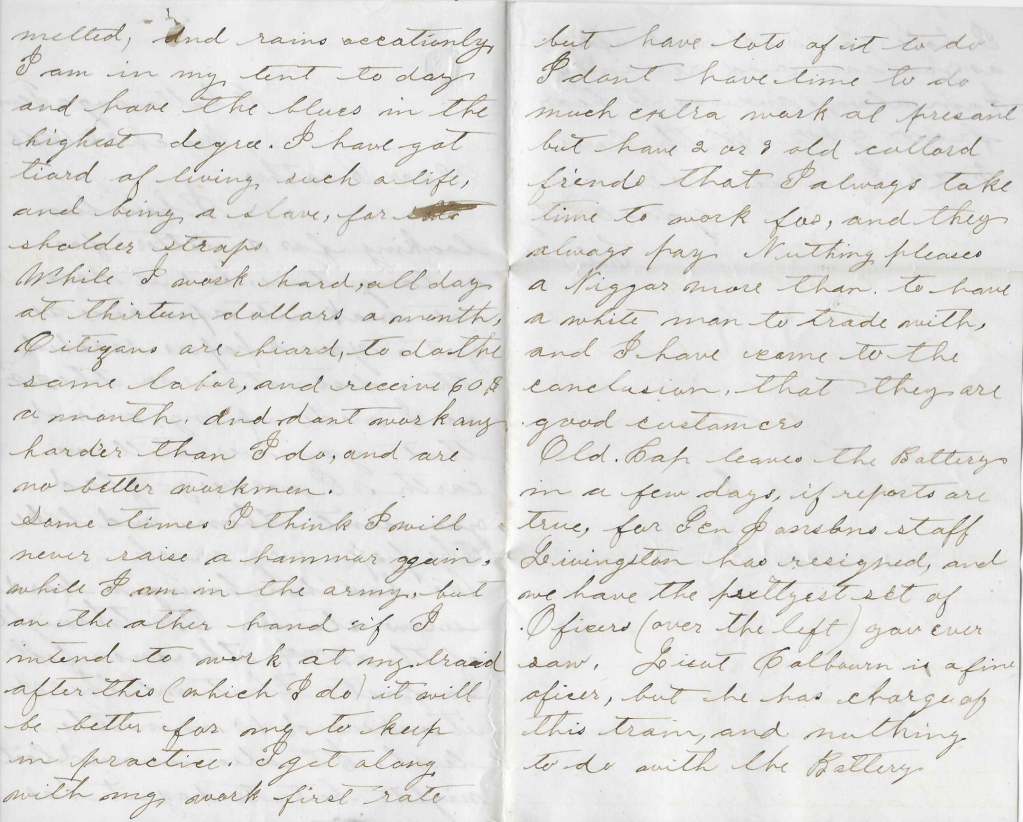 melted, and rains occationly
I am in my tent to day
and have the blues in the
highest degree. I have got
tiard of living such a life,
and being a slave, for
sholder straps
While I work hard, all day
at thirteen dollars a month,
Citizans are hiard, to do the
same labor, and receive 60$
a month. And dont work any
harder than I do, and are
no better workmen.
Some times I think I will
never raise a hammar again,
while I am in the army, but
on the other hand if I
intend to work at my traid
after this (which I do) it will
be better for my to keep
in practice. I get along
with my work first rate
but have lots of it to do
I dont have time to do
much extra work at presant
but have 2 or 3 old collord
friends that I always take
time to work for, and they
always pay Nuthing pleases
a Niggar more than to have
a white man to trade with,
and I have come to the
conclusion, that they are
good customers
Old Cap leaves the Battery
in a few days, if reports are
true, for Gen staff
Livingston has resigned, and
we have the prettyest set of
Oficers (over the left) you ever
saw. Lieut Colbourn is a fine
oficer, but he has charge of
this train, and nuthing
to do with the Battery